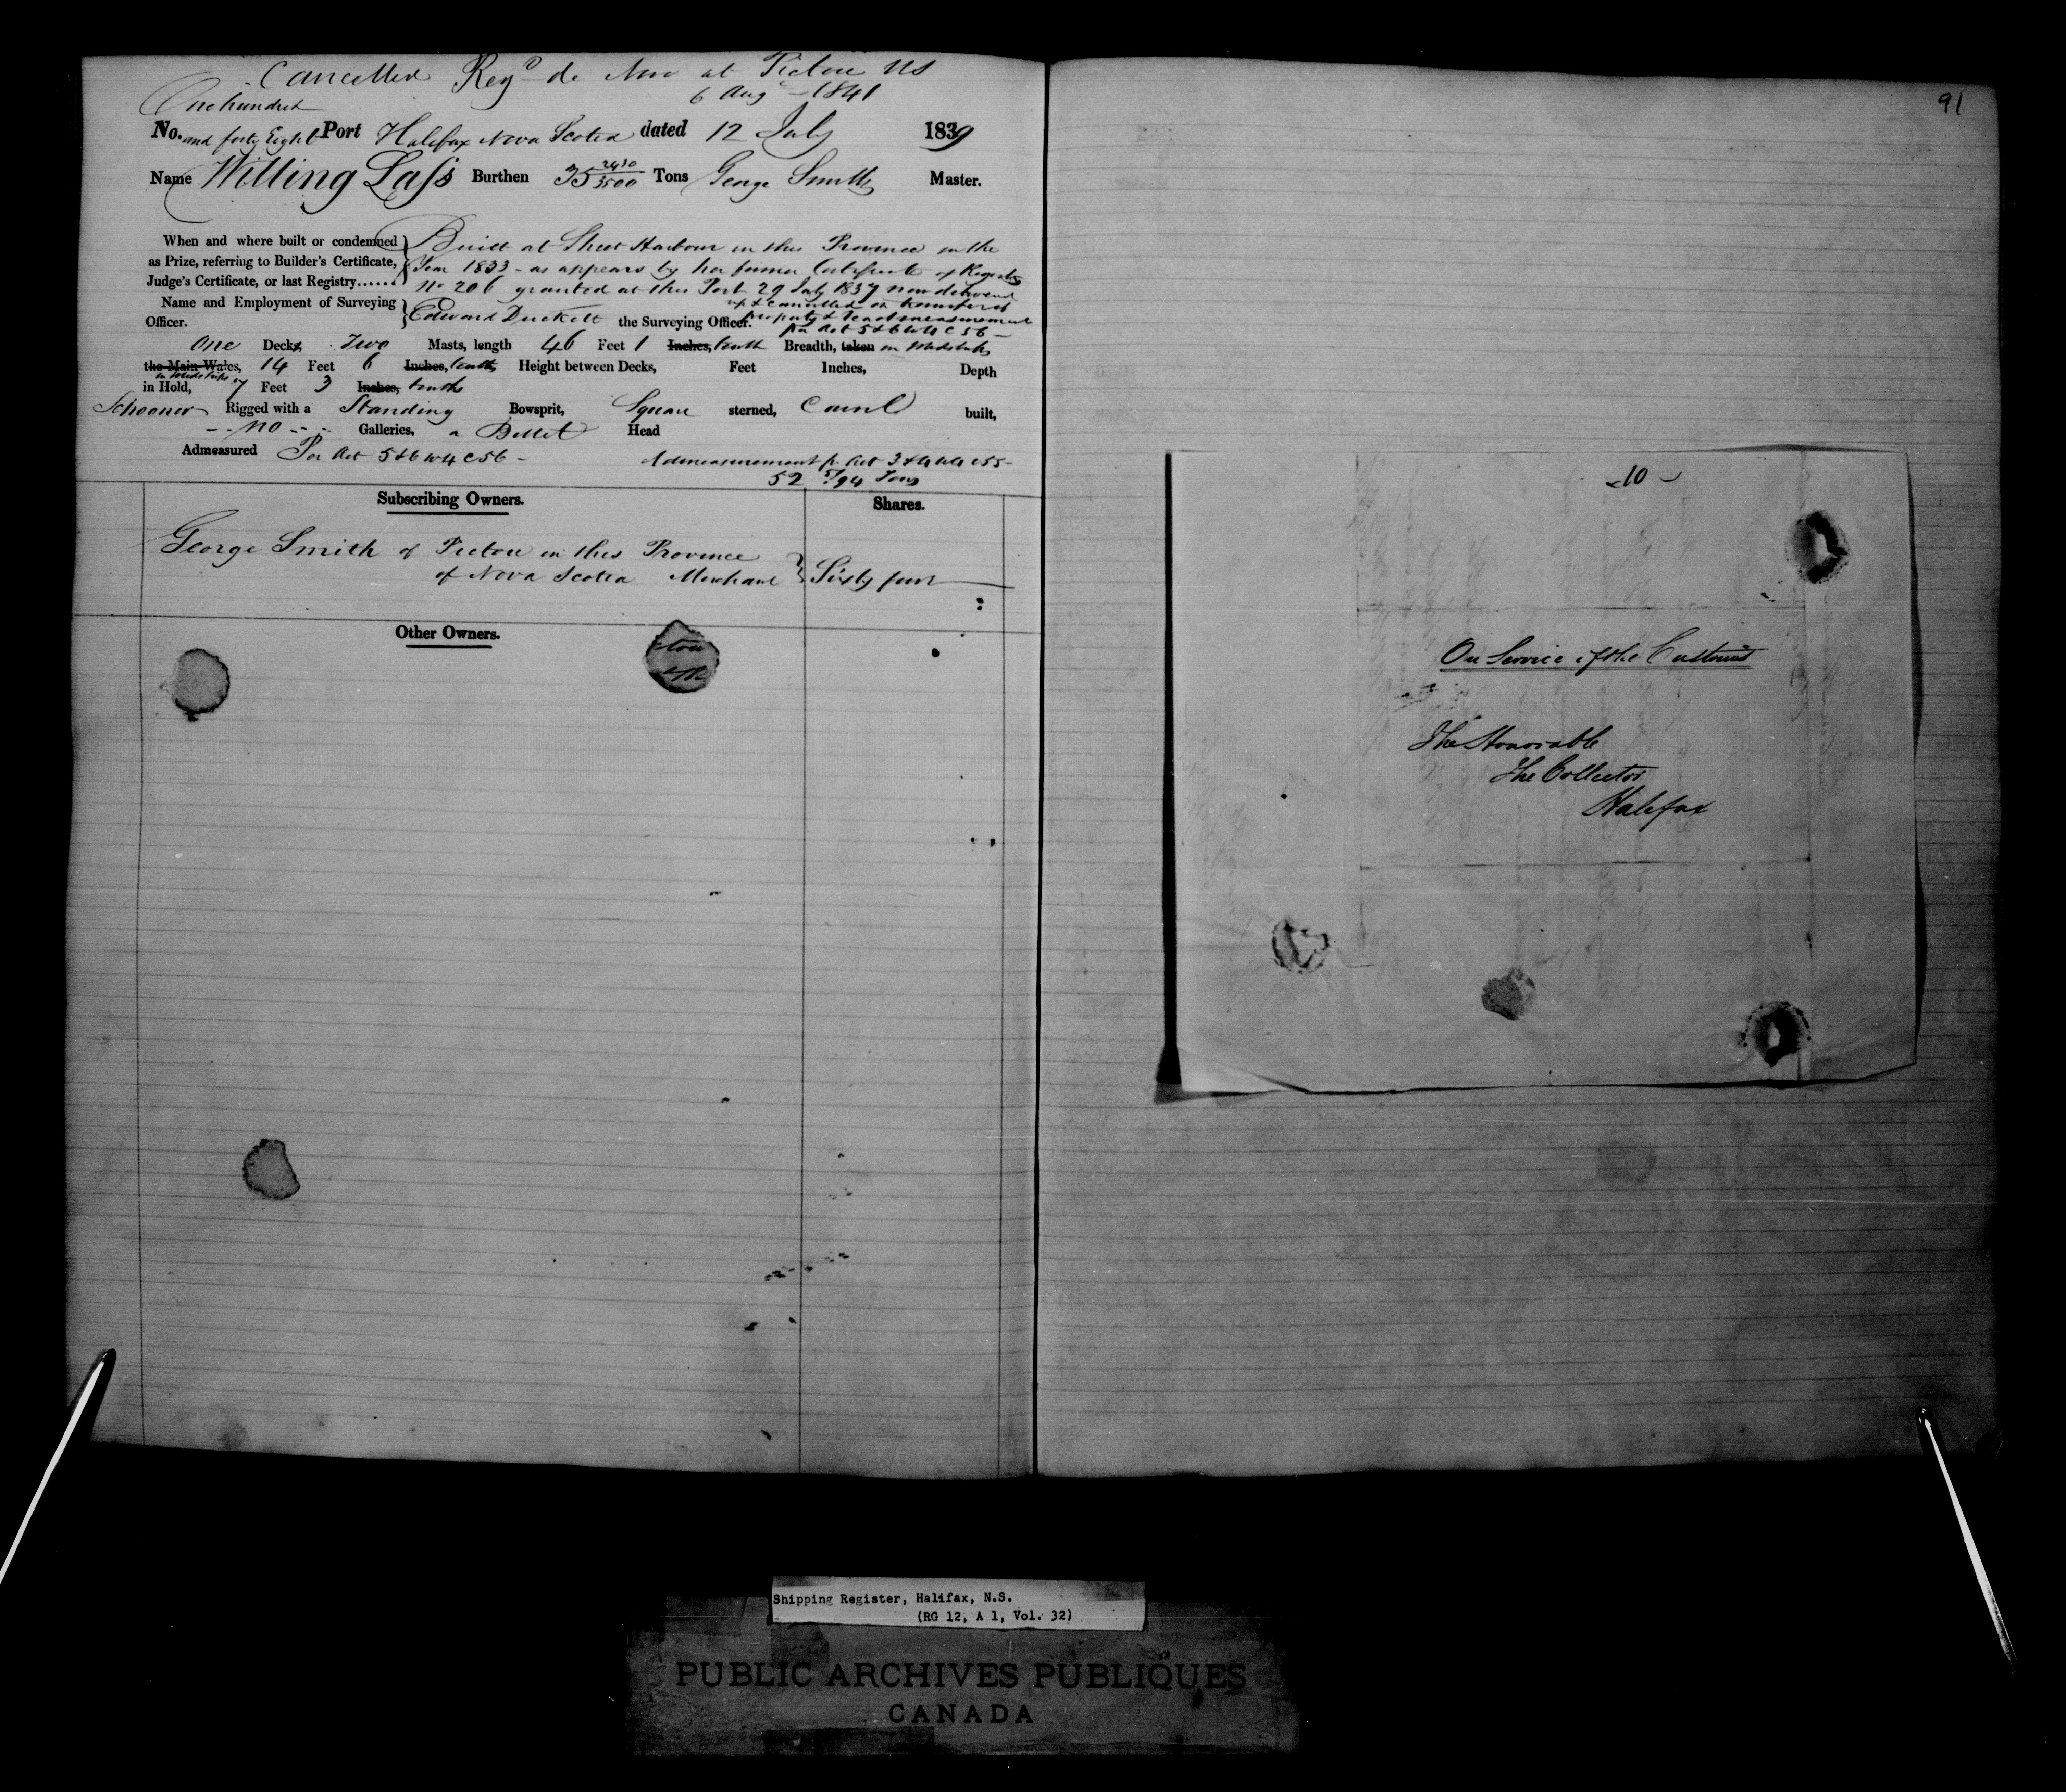 Cancelled Regd de Novo at Pictou NS
6 Augt 1841
One hundred
No. and forty Eight Port Halifax Nova Scotia dated 12 July 1839
Name Willing Lass Burthen 35 2430/3500 Tons George Smith Master.
When and where built or condemned
as Prize, referring to Builder's Certificate,
Judge's Certificate, or last Registry......
Built at Sheet Harbour in this Province in the
Year 1833 - as appears by her former Certificate of Registry
No 206 granted at this Port 29 July 1837 now delivered
up & cancelled on transfer of
property & readmeasurement
per Act 5 & 6 W 4 C 56 -
Name and Employment of Surveying
Officer.
Edward Duckett the Surveying Officer.
One Decks, Two Masts, length 46 Feet 1 Inches, tenth Breadth, taken in Midships
the Main Wales, 14 Feet 6 Inches, tenths, Height between Decks, Feet Inches, Depth
in Midships
in Hold, 7 Feet 3 Inches, tenths
Schooner Rigged with a Standing Bowsprit, Square sterned, Carvel built,
no Galleries, a Billet Head
Admeasured Per Act 5 & 6 W 4 C 56 -
Admeasurement pr Act 3 & 4 W 4 C 55 -
52 5/94 Tons
Subscribing Owners. Shares.
George Smith of Pictou in this Province
of Nova Scotia Merchant Sixty four
Other Owners.
91
10
On Service of the Customs
The Honorable
The Collector
Halifax
Shipping Register, Halifax, N.S.
(RG 12, A 1, Vol. 32)
PUBLIC ARCHIVES PUBLIQUES
CANADA